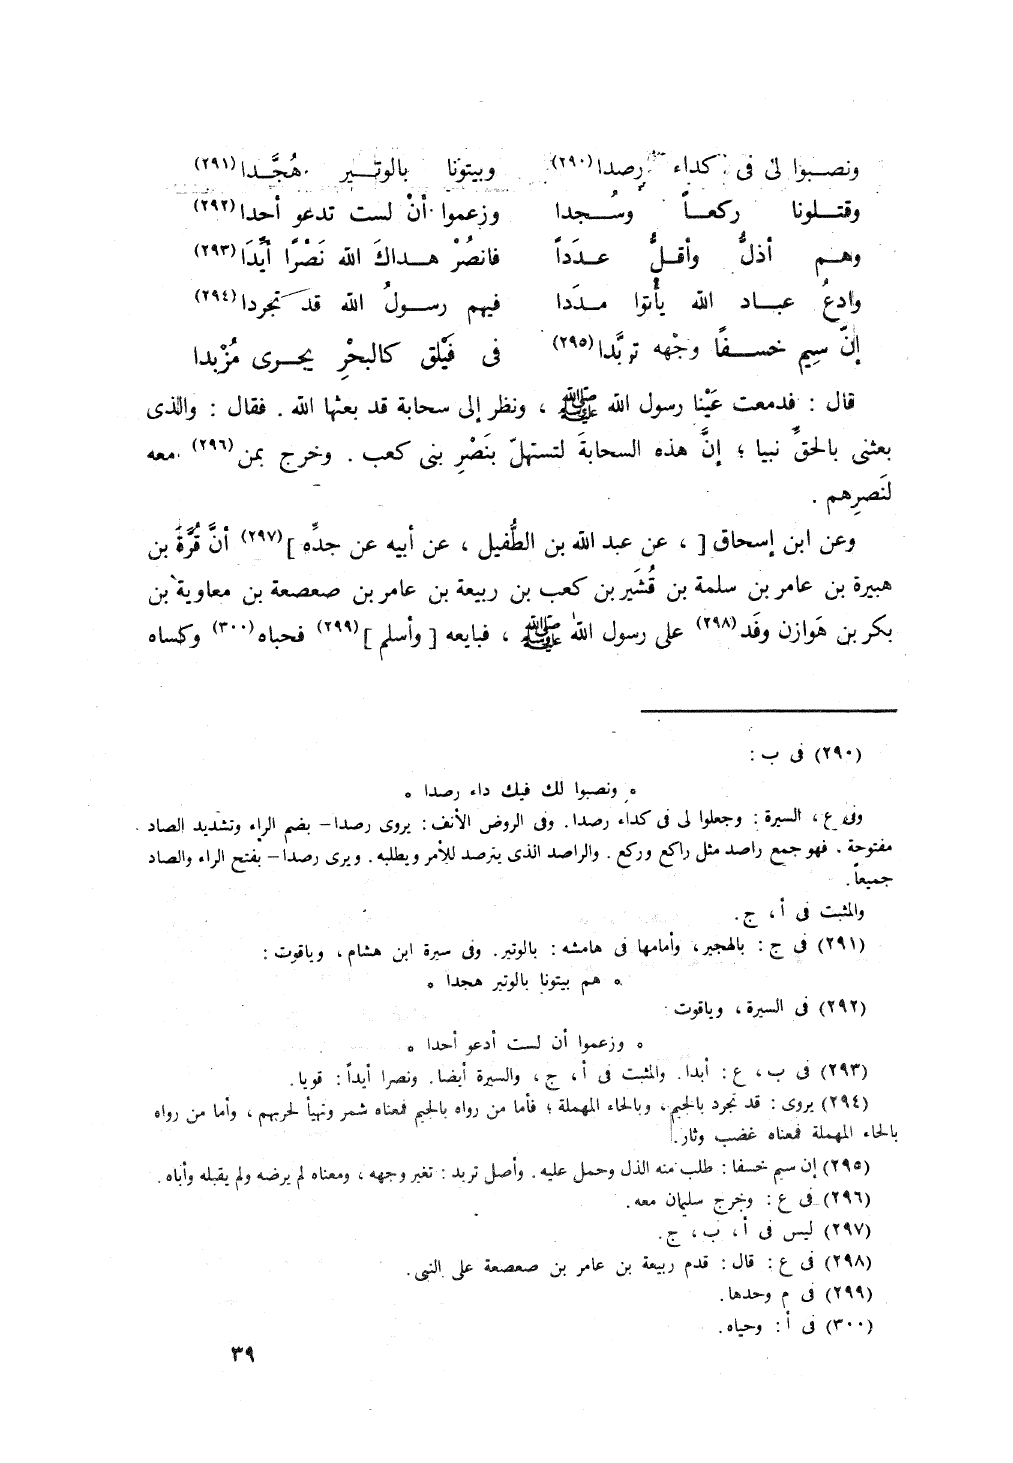 ونصبوا لى فى كداء رصدا (٢٩٠) وبيتونا بالوتير هُجَّدا (٢٩١)
وقتلونا ركعاً وسُجدا وزعموا أنْ لست تدعو أحدا (٢٩٢)
وهم أذلُّ وأقلُّ عدَداً فانصُرْ هداكَ الله نَصْرًا أيَّدَا (٢٩٣)
وادعُ عباد الله يأتوا مدَدا فيهم رسولُ الله قد تجردا (٢٩٤)
إنّ سِيم خسفًا وجْهه تربَّدا (٢٩٥) فى فَيْلق كالبحْرِ يجرى مُزْبدا
قال : فدمعت عَيْنا رسول الله ﷺ ، ونظر إلى سحابة قد بعثها الله . فقال : والذى
بعثنى بالحقِّ نبيا ؛ إنَّ هذه السحابةَ لتستهلّ بنَصْرِ بنى كعب . وخرج بمن (٢٩٦) معه
لنَصرِهم .
وعن ابن إسحاق [ ، عن عبد الله بن الطُّفيل ، عن أبيه عن جدِّه ] (٢٩٧) أنَّ قُرَّةَ بن
هبيرة بن عامر بن سلمة بن قُشَير بن كعب بن ربيعة بن عامر بن صعصعة بن معاوية بن
بكر بن هَوازن وفَد (٢٩٨) على رسول الله ﷺ ، فبايعه [ وأسلم ] (٢٩٩) فحباه (٣٠٠) وكساه
(٢٩٠) فى ب :
٥ ونصبوا لك فيك داء رصدا ٥
وفى ع ، السيرة : وجعلوا لى فى كداء رصدا. وفى الروض الأنف : يروى رصدا – بضم الراء وتشديد الصاد
مفتوحة . فهو جمع راصد مثل راكع وركع . والراصد الذى يترصد للأمر ويطلبه. ويرى رصدا – بفتح الراء والصاد
جميعاً .
والمثبت فى أ ، ج .
(٢٩١) فى ج : بالهجير، وأمامها فى هامشه : بالوتير. وفى سيرة ابن هشام ، وياقوت :
٥ هم بيتونا بالوتير هجدا ٥
(٢٩٢) فى السيرة ، وياقوت
٥ وزعموا أن لست أدعو أحدا ٥
(٢٩٣) فى ب ، ع : أبدا. والمثبت فى أ ، ج ، والسيرة أيضا. ونصرا أيداً : قويا .
(٢٩٤) يروى : قد تجرد بالجيم ، وبالحاء المهملة ؛ فأما من رواه بالجيم فمعناه شمر وتهيأ لحربهم ، وأما من رواه
بالحاء المهملة فمعناه غضب وثار .
(٢٩٥) إن سيم خسفا : طلب منه الذل وحمل عليه . وأصل تربد : تغير وجهه ، ومعناه لم يرضه ولم يقبله وأباه .
(٢٩٦) فى ع : وخرج سليمان معه .
(٢٩٧) ليس فى أ ، ب ، ج .
(٢٩٨) فى ع : قال : قدم ربيعة بن عامر بن صعصعة على النبى .
(٢٩٩) فى م وحدها .
(٣٠٠) فى أ : وحياه .
٣٩